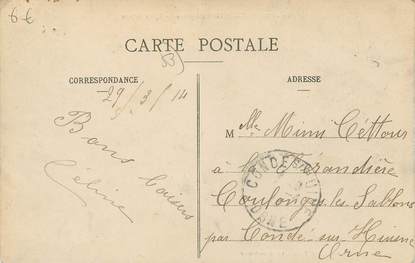 6€
CARTE POSTALE
53
CORRESPONDANCE
ADRESSE
29/3/14
Bons baisers
Céline
Mlle Mimi
à la
Coulonges les Sablons
par Condé sur Huisne
Orne